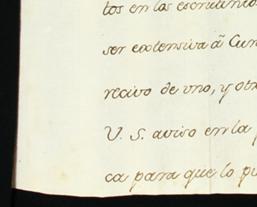 tos en las escrutinio
ser extensiva ã Cun
recivo de uno, y otr
V. S. aviso en la p
ca para que lo pu